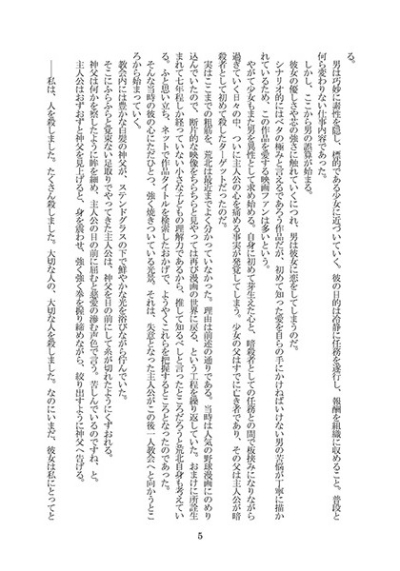 る。
　男は巧妙に素性を隠し、標的である少女に近づいていく。彼の目的は冷静に任務を遂行し、報酬を組織に収めること。普段と
何ら変わらない仕事内容であった。
　しかし、ここから男の誤算が始まる。
　彼女の優しさや芯の強さに触れていくにつれ、男は彼女に恋をしてしまうのだ。
　シナリオ的にはベタの極みと言えるであろう作品だが、初めて知った愛を自らの手にかけねばいけない男の苦悩が丁寧に描か
れているため、この作品を愛する映画ファンは多いという。
　やがて少女もまた男を異性として求め始める。自身に初めて芽生えた心と、暗殺者としての任務との間で板挟みになりながら
過ぎていく日々の中、ついに主人公の心を痛める事実が発覚してしまう。少女の父はすでに亡き者であり、その父は主人公が暗
殺者として初めて殺したターゲットだったのだ。
　実はここまでの粗筋を、荒北は最近までよく分かっていなかった。理由は前述の通りである。当時は人気の野球漫画にのめり
込んでいたので、断片的な映像をちらちらと見やっては再び漫画の世界に戻る、という工程を繰り返していた。おまけに所詮生
まれて七年程しか経っていない小さな子どもの理解力であるから、推して知るべしと言ったところだろうと荒北自身も考えてい
る。ふと思い立ち、ネットで作品タイトルを検索したおかげで、ようやくこれらを把握するところとなったのであった。
　そんな当時の彼の心にただひとつ、強く焼きついている光景。それは、失意となった主人公がこの後一人教会へと向かうとこ
ろから始まっていく。
　教会内には豊かな白髪の神父が、ステンドグラスの下で鮮やかな光を浴びながら佇んでいた。
　そこにふらふらと覚束ない足取りでやってきた主人公は、神父を目の前にして糸が切れたようにくずおれる。
　神父は何かを察したように眸を細め、主人公の目の前に屈むと慈愛の滲む声色で言う。苦しんでいるのですね、と。
　主人公はおずおずと神父を見上げると、身を震わせ、強く強く拳を握り締めながら、絞り出すように神父へ告げる。
――私は、人を殺しました。たくさん殺しました。大切な人の、大切な人を殺しました。なのにいまだ、彼女は私にとってと
5